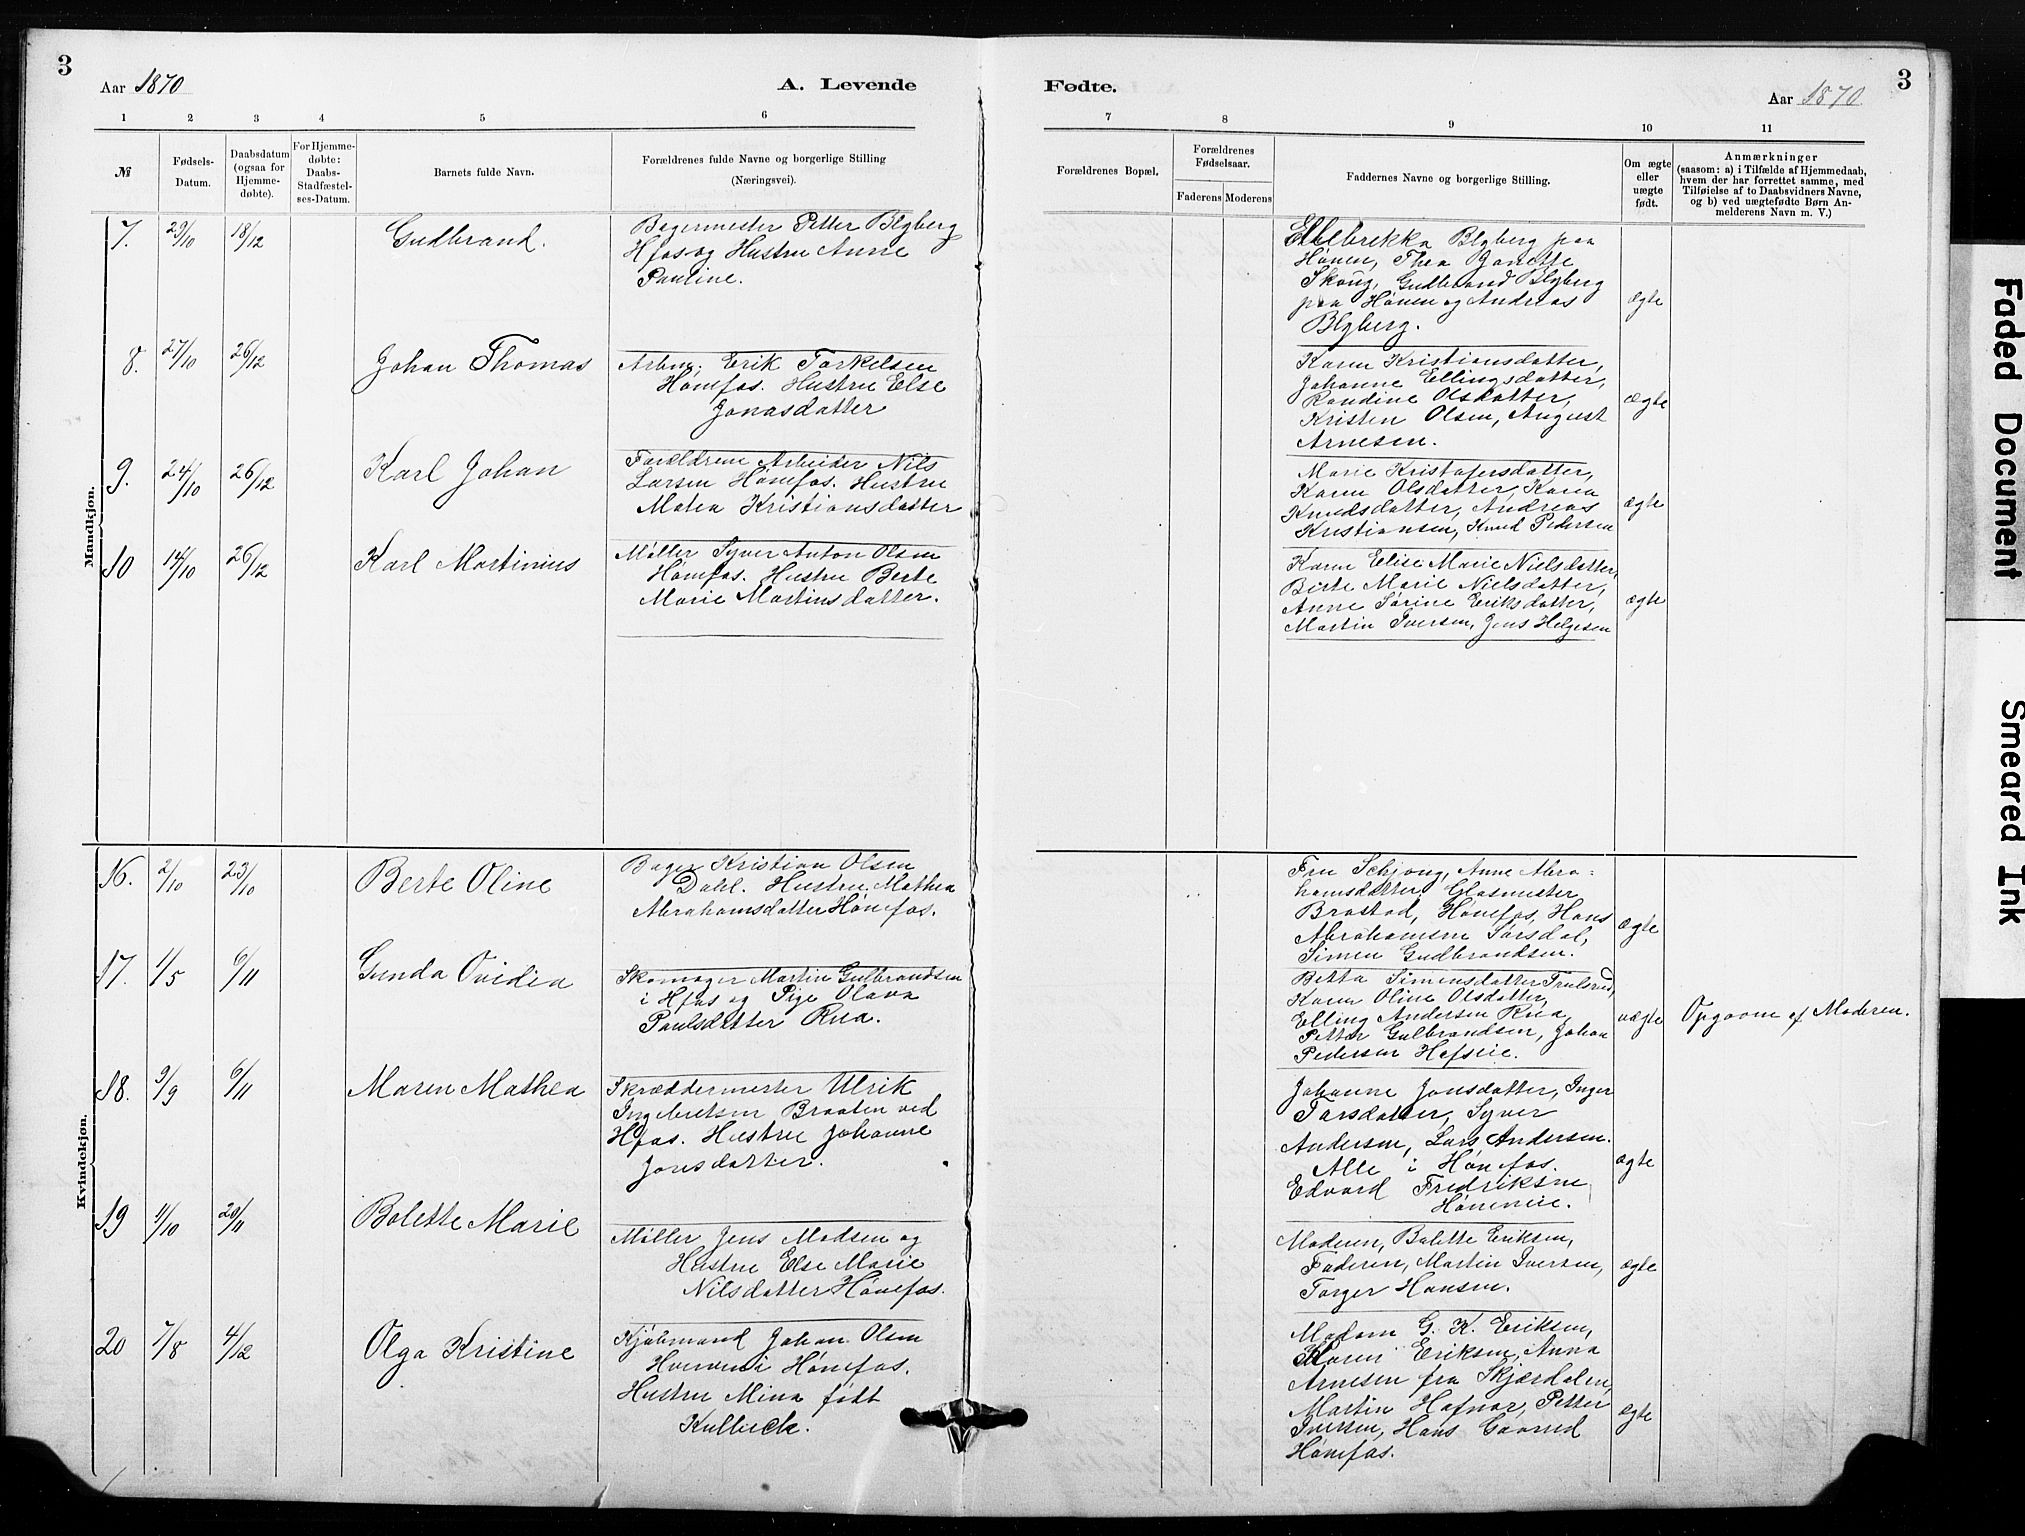 3
Aar 1870
A. Levende
Fødte.
Aar 1870
3
1 2 3 4 5 6 7 8 9 10 11
№
Fødsels-
Datum.
Daabsdatum
(ogsaa for
Hjemme-
døbte).
For Hjemme-
døbte:
Daabs-
Stadfæstel-
ses-Datum.
Barnets fulde Navn.
Forældrenes fulde Navne og borgerlige Stilling
(Næringsvei).
Forældrenes Bopæl.
Forældrenes
Fødselsaar.
Faderens Moderens
Faddernes Navne og borgerlige Stilling.
Om ægte
eller
uægte
født.
Anmærkninger
(saasom: a) i Tilfælde af Hjemmedaab,
hvem der har forrettet samme, med
Tilføielse af to Daabsvidners Navne,
og b) ved uægtefødte Børn An-
melderens Navn m. V.)
Mandkjøn.
7. 29/10 18/12 Gudbrand.
Bagermester Petter Blyberg
Hfos og Hustru Anne
Pauline.
Blyberg paa
Hønen, Thea Janette
Skoug, Gudbrand Blyberg
paa Hønen og Andreas
Blyberg.
ægte
8. 27/10 26/12 Johan Thomas
Arbm: Erik Torkelsen
Hønefos. Hustru Else
Jonasdatter
Karen Kristiansdatter,
Johanne Ellingsdatter,
Randine Olsdatter,
Kristen Olsen, August
Arnesen.
ægte
9. 24/10 26/12 Karl Johan
Forældrene Arbeider Nils
Larsen Hønefos. Hustru
Matea Kristiansdatter
Marie Kristofersdatter,
Karen Olsdatter, Karen
Knudsdatter, Andreas
Kristiansen, Knud Pedersen
ægte
10 14/10 26/12 Karl Martinius
Møller Syver Anton Olsen
Hønefos. Hustru Berte
Marie Martinsdatter.
Karen Elise Marie Nielsdatter,
Berte Marie Nielsdatter,
Anne Sørine Eriksdatter,
Martin Iversen, Jens Helgesen
ægte
Kvindekjøn.
16. 2/10 23/10 Berte Oline
Bager Kristian Olsen
Dahl. Hustru Mathea
Abrahamsdatter Hønefos.
Fru Schjong, Anne Abra=
hamsdatter Glasmester
Brastad, Hønefos, Hans
Abrahamsen Sørsdal,
Simen Gudbrandsen.
ægte
17. 1/5 6/11 Gunda Ovidia
Skomager Martin Gulbrandsen
i Hfos og Pige Olava
Paulsdatter Rua.
Betta Simensdatter Trulsrud,
Karen Oline Olsdatter,
Elling Andersen Rua,
Petter Gulbrandsen, Johan
Pedersen Hofseie.
uægte
Opgaven af Moderen.
18. 9/9 6/11 Maren Mathea
Skræddermester Ulrik
Ingebretsen Braaten ved
Hfos. Hustru Johanne
Jonsdatter.
Johanne Jonsdatter, Inger
Larsdatter, Syver
Andersen, Lars Andersen.
Alle i Hønefos.
Edvard Fredriksen
Høneneie.
ægte
19 11/10 20/11 Bolette Marie
Møller Jens Madsen og
Hustru Else Marie
Nilsdatter Hønefos.
Moderen, Bolette Eriksen,
Faderen, Martin Iversen,
Torger Hansen.
ægte
20 7/8 4/12 Olga Kristine
Kjøbmand Johan Olsen
Hverven i Hønefos.
Hustru Mina født
Kulbeck.
Madam G. K. Eriksen,
Karen Eriksen, Anna
Arnesen fra Skjærdalen,
Martin Hafnor, Petter
Iversen, Hans Gaarud
Hønefos.
ægte
Faded Document
Smeared Ink